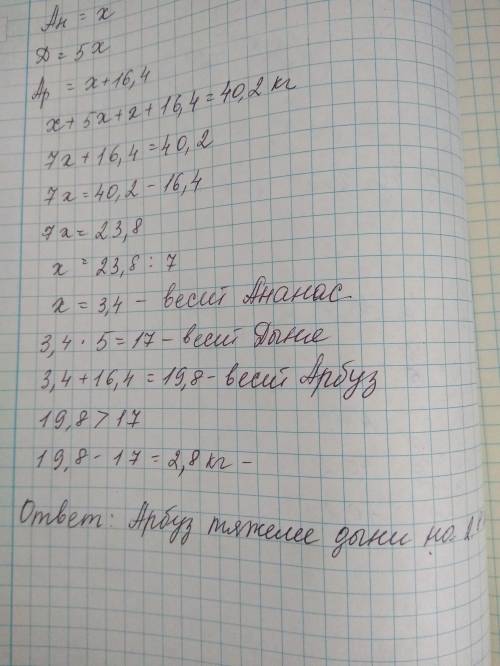 Ан = x
Д = 5x
Ар = x+16,4
x+5x+x+16,4=40,2 кг
7x+16,4=40,2
7x=40,2-16,4
7x=23,8
x=23,8:7
x=3,4 - весит Ананас
3,4·5=17 - весит Дыня
3,4+16,4=19,8 - весит Арбуз
19,8>17
19,8-17=2,8 кг -
Ответ: Арбуз тяжелее дыни на 2